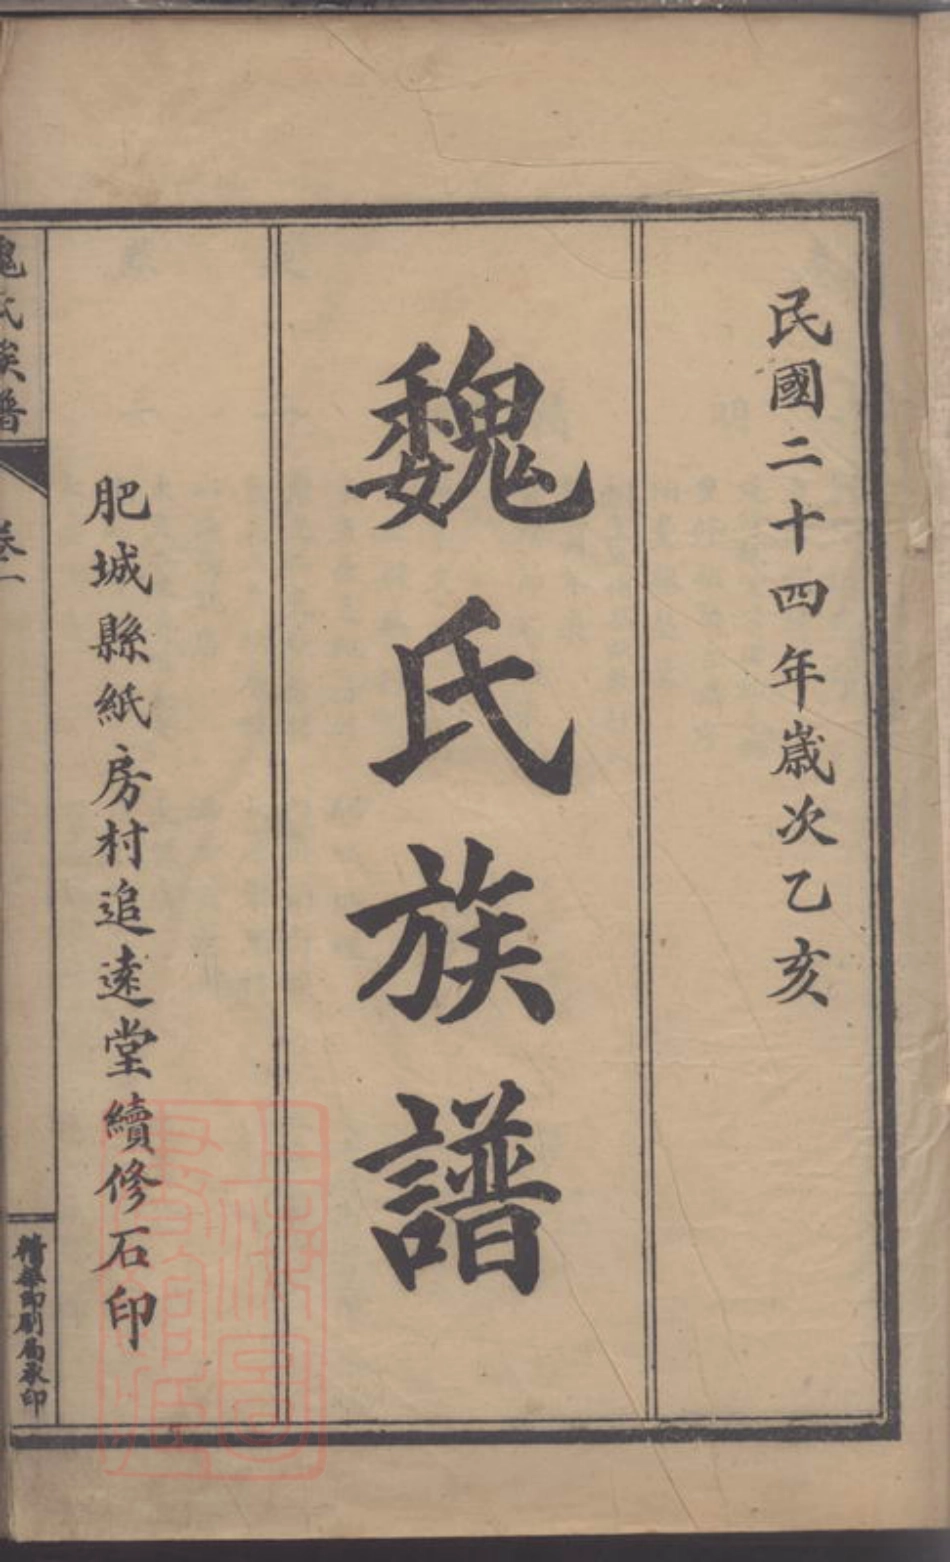 民國二十四年歲次乙亥
魏氏族譜
肥城縣紙房村追遠堂續修石印
魏氏族譜
卷一
精華印刷局承印
上海圖書館藏